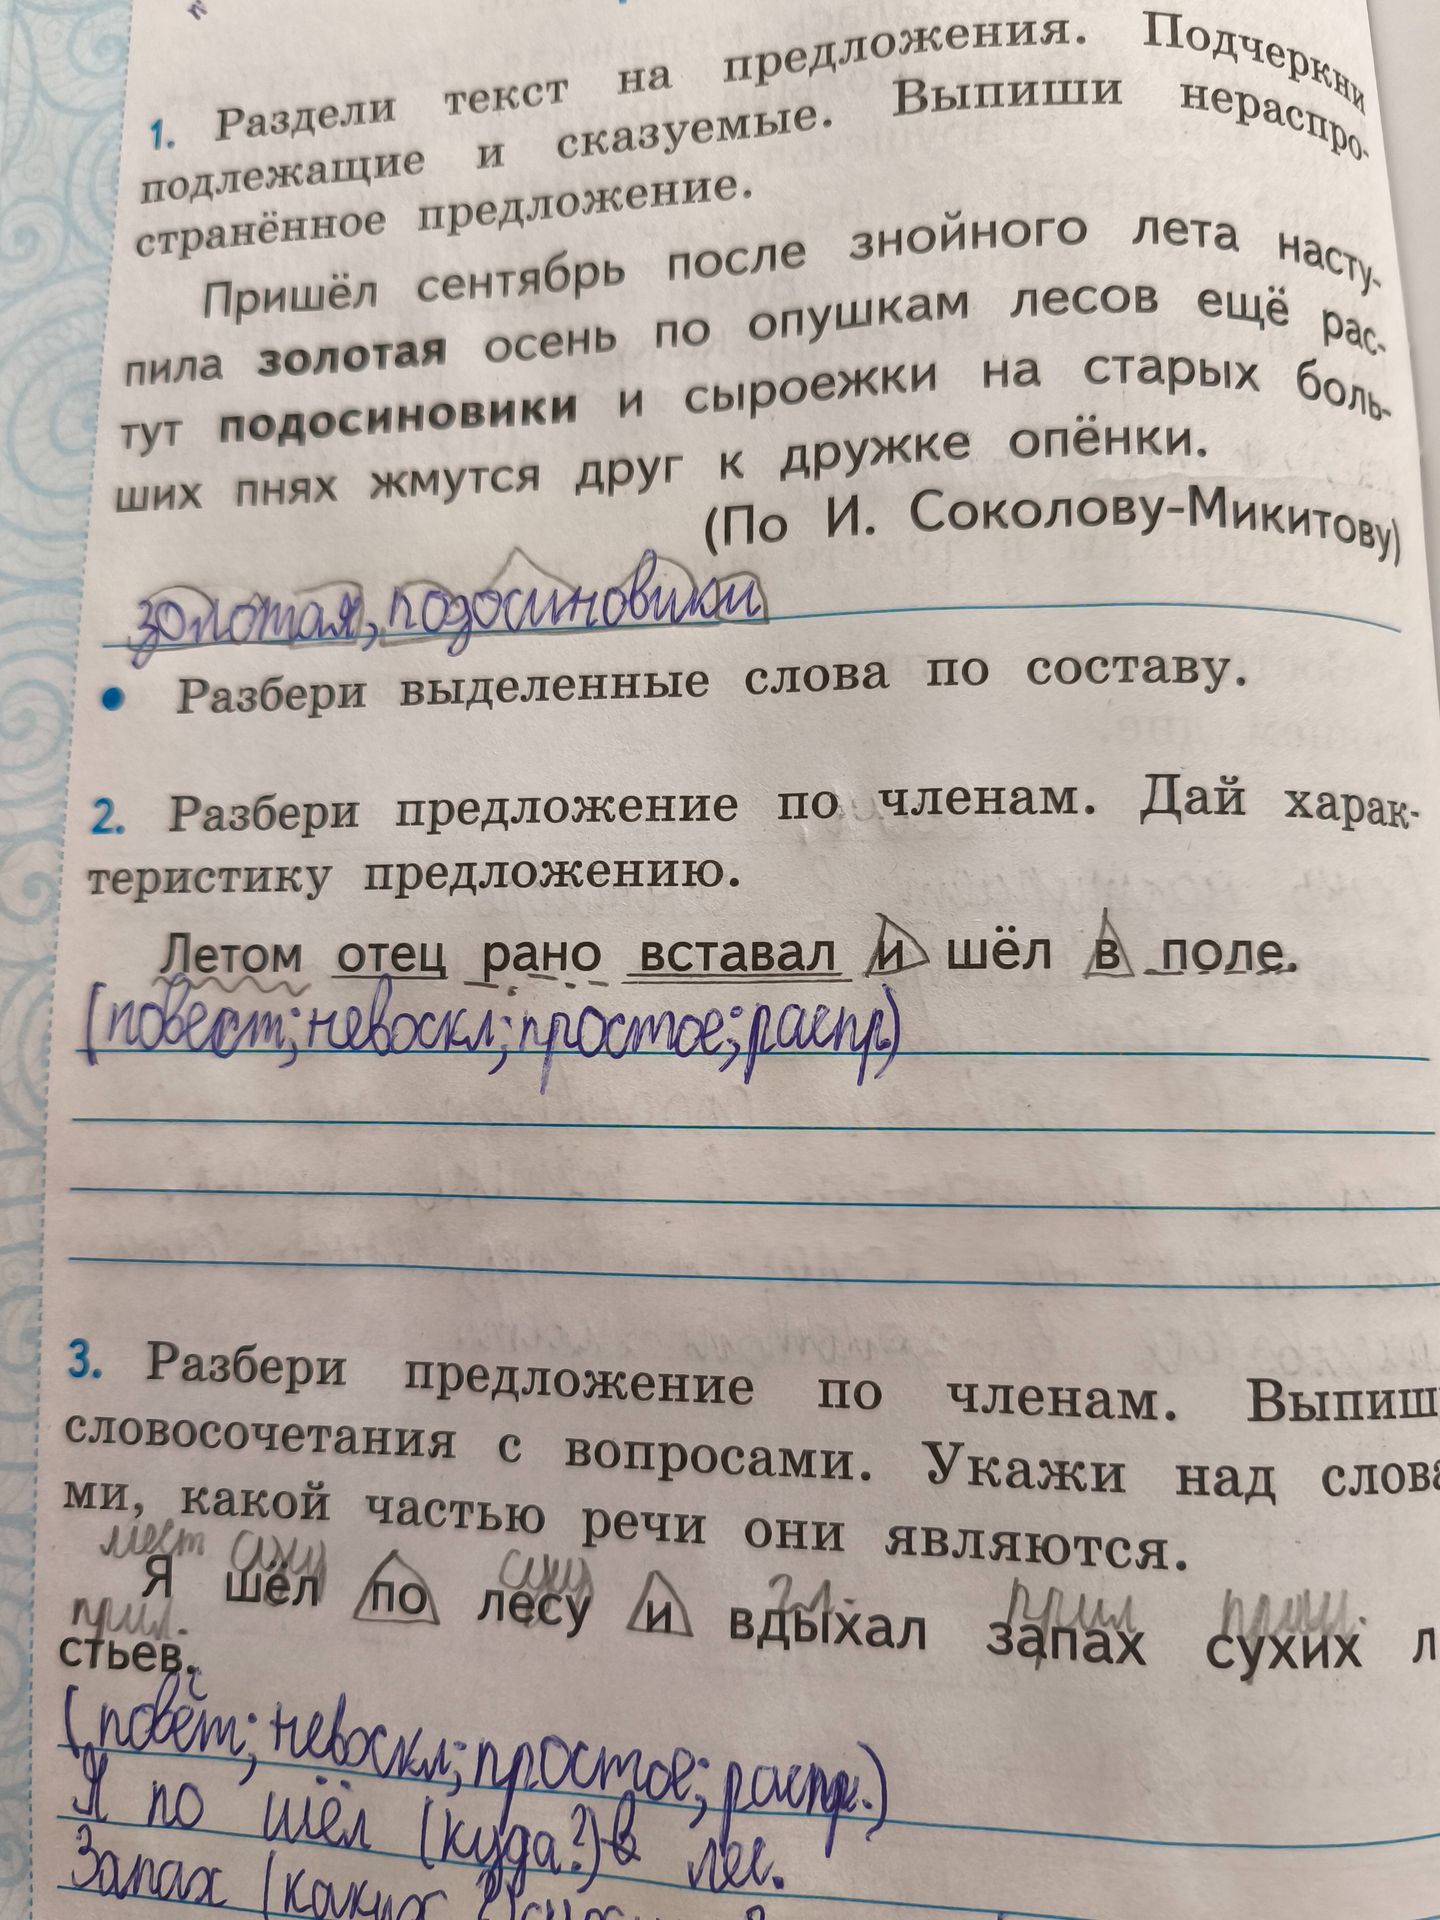 1. Раздели текст на предложения. Подчеркни
подлежащие и сказуемые. Выпиши нераспро-
странённое предложение.
Пришёл сентябрь после знойного лета насту-
пила золотая осень по опушкам лесов ещё рас-
тут подосиновики и сыроежки на старых боль-
ших пнях жмутся друг к дружке опёнки.
(По И. Соколову-Микитову)
золотая, подосиновики
• Разбери выделенные слова по составу.
2. Разбери предложение по членам. Дай харак-
теристику предложению.
Летом отец рано вставал и шёл в поле.
(повест; невоскл; простое; распр.)
3. Разбери предложение по членам. Выпиш
словосочетания с вопросами. Укажи над слова
ми, какой частью речи они являются.
мест сущ сущ гл. прил
Я шёл по лесу и вдыхал запах сухих л
прил.
стьев.
(повест; невоскл; простое; распр.)
Я по шёл (куда?) в лес.
Запах (каких